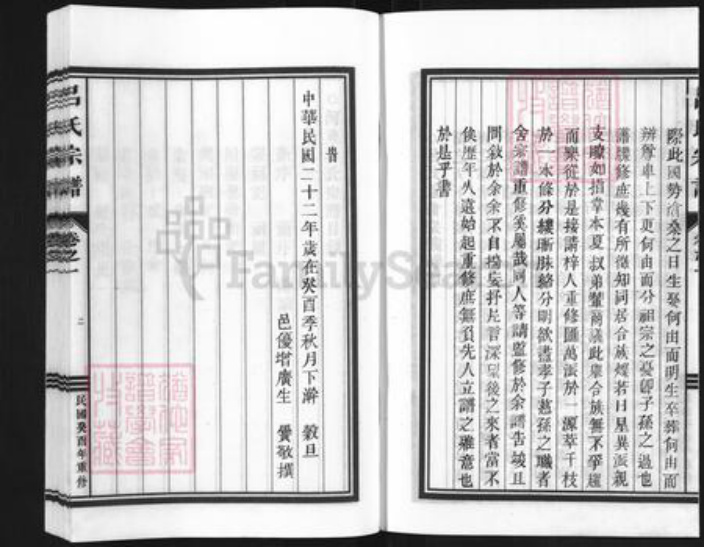 際此國勢滄桑之日生娶何由而明生卒葬何由而
辨尊卑上下更何由而分祖宗之憂即子孫之過也
譜牒修庶幾有所徵知同居合族燦若日星異派親
支瞭如指掌本夏叔弟輩商議此舉合族無不爭趨
而樂從於是接請梓人重修匯萬派於一源萃千枝
於一本條分縷晰脉絡分明欲盡孝子慈孫之職者
舍宗譜重修奚屬哉同人等請監修於余譜告竣且
問敘於余余不自揣妄抒片言深望後之來者當不
俟歷年久遠始起重修庶無負先人立譜之雅意也
於是乎書
旹
中華民國二十二年歲在癸酉季秋月下澣 穀旦
邑優增廣生 敬撰
呂氏宗譜
卷之一
二
民國癸酉年重修
FamilySearch